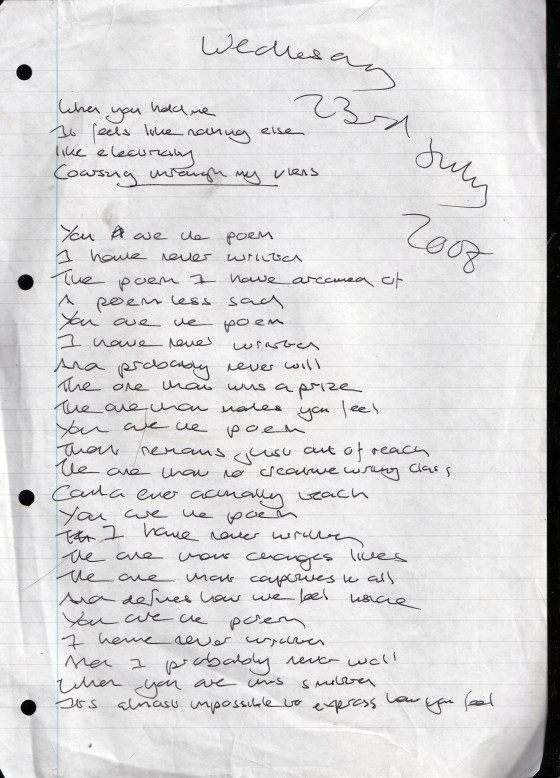 Wednesday
23rd
July
2008
When you hold me
It feels like nothing else
like electricity
Coursing through my viens
You are the poem
I have never written
The poem I have dreamed of
A poem less sad
You are the poem
I have never written
And probably never will
The one that wins a prize
The one that makes you feel
You are the poem
That remains just out of reach
The one that no creative writing class
Could ever actually teach
You are the poem
I have never written
The one that changes lives
The one that captures it all
And defines how we feel inside
You are the poem
I have never written
And I probably never will
When you are this smitten
It's almost impossible to express how you feel